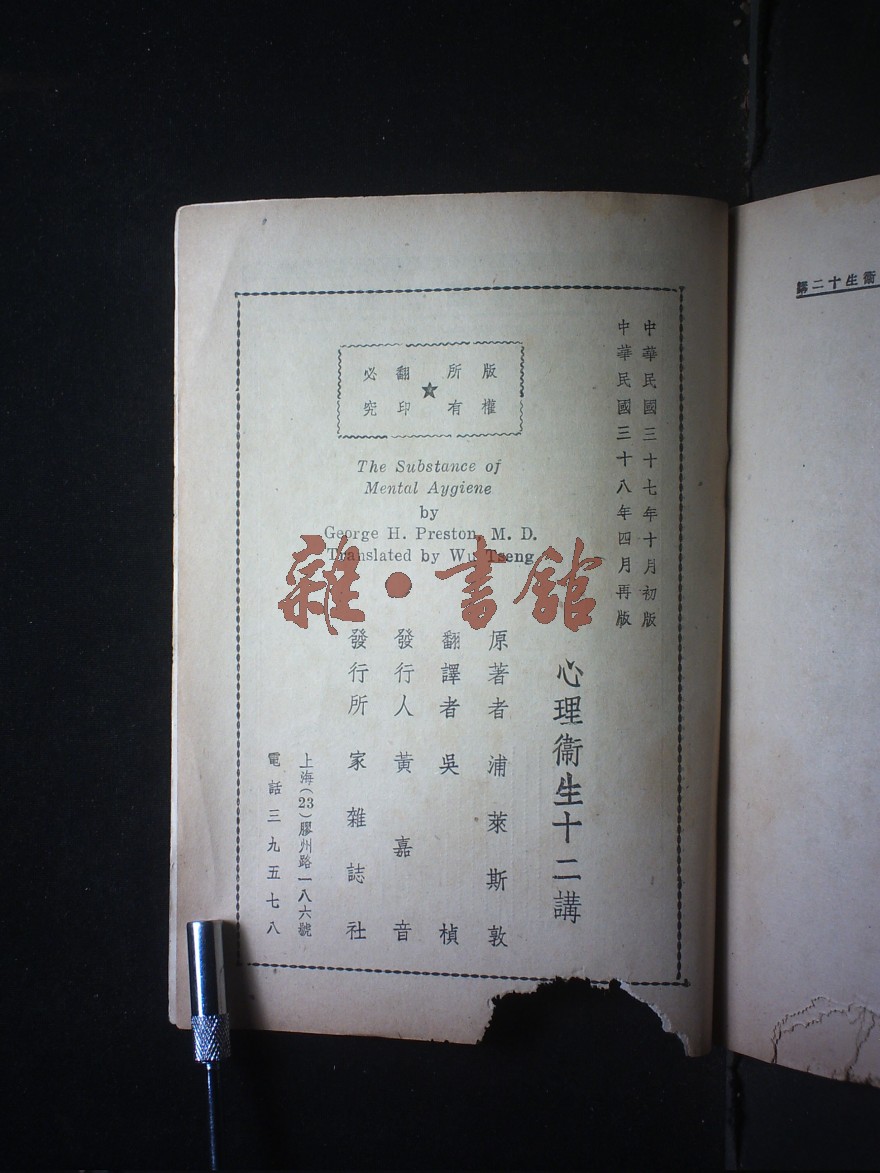 中華民國三十七年十月初版
中華民國三十八年四月再版
版權所有
翻印必究
The Substance of
Mental Aygiene
by
George H. Preston, M. D.
Translated by Wu Tseng
雜·書館
心理衞生十二講
原著者 浦萊斯敦
翻譯者 吳楨
發行人 黃嘉音
發行所 家雜誌社
上海(23)膠州路一八六號
電話三九五七八
講二十生衞